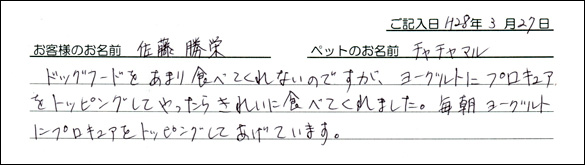 ご記入日 H28年 3月27日
お客様のお名前 佐藤 勝栄 ペットのお名前 チャチャマル
ドッグフードをあまり食べてくれないのですが、ヨーグルトにプロキュア
をトッピングしてやったらきれいに食べてくれました。毎朝ヨーグルト
にプロキュアをトッピングしてあげています。